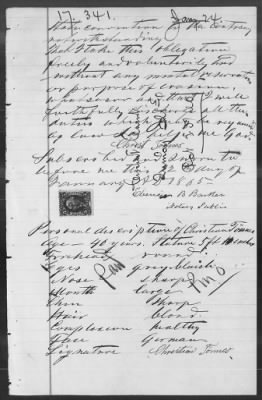 17 341. Jany 24.
State convention to the contrary
notwithstanding
that I take this obligation
freely and voluntarily and
without any mental reservation
or purpose of evasion
and that I will
faithfully discharge the
duties which may be required
by law So help me God.
Subscribed and Sworn to
before me this day of
January 1865
Ebenezer B Barker
Notary Public
Personal description of Christian
Age - 40 years. Stature 5 ft 10 inches
Forehead round
Eyes grey bluish
Nose sharp
Mouth large
Chin sharp
Hair blond
Complexion healthy
Face German
Signature Christian